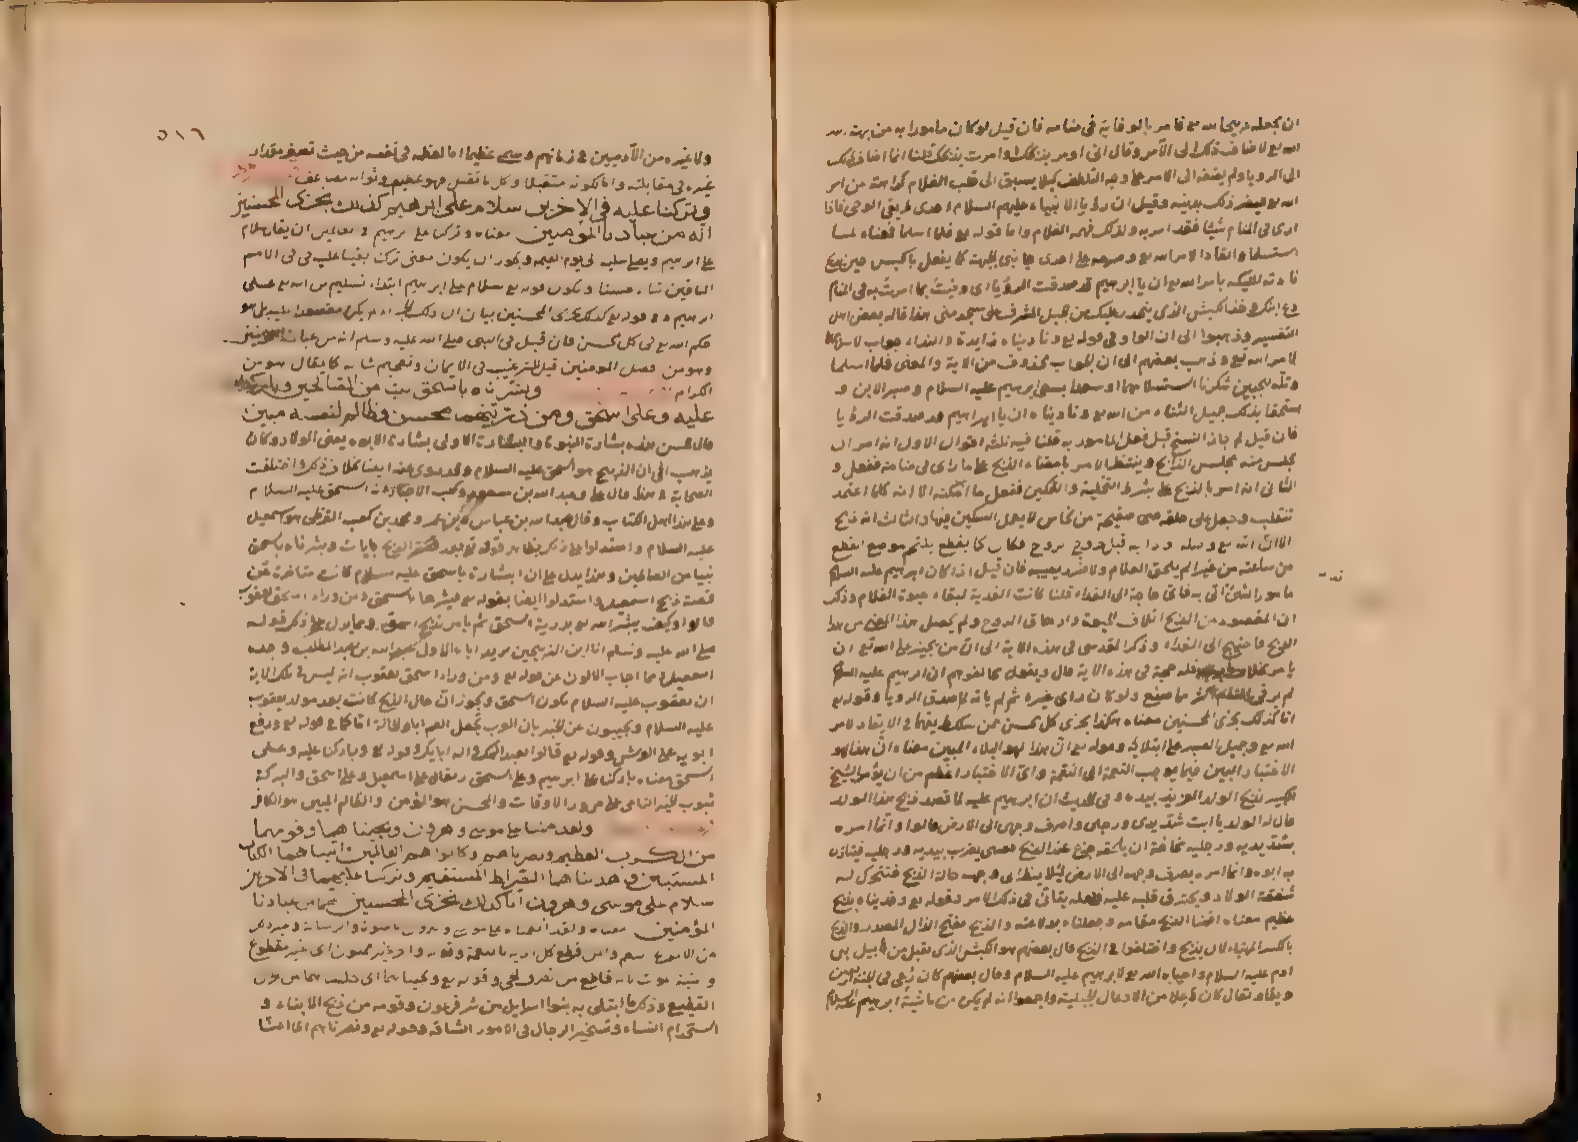 ان يجعله ذبيحا لله تع فامر بالوفاية في منامه فان قيل لو كان مامورا به من جهة
الله تع لاضاف ذلك الى الآمر وقال اني اومر بذبحك او امرت بذبحك قلنا انما اضاف ذلك
الى الرويا ولم يضفه الى الامر على وجه التلطف كيلا يسبق الى قلب الغلام كراهته من امر
الله تع فيضر ذلك بدينه وقيل ان رؤيا الانبياء عليهم السلام احدى طريقي الوحي فاذا
ارى في المنام شيئا فقد امر به ولذلك فهمه الغلام واما قوله تع فلما اسلما فمعناه لما
استسلما وانقادا لامر الله تع وصرعه على احدى جانبي الجبهة كما يفعل بالكبش حين يذبح
نادته الملئكة بامر الله تع ان يا ابرهيم قد صدقت الرؤيا اى وفيت بما امرت به في المنام
دع ابنك وخذ الكبش الذى ينحدر عليك من جبل المشرف على مسجد منى هذا قاله بعض اهل
التفسير وذهبوا الى ان الواو في قوله تع وناديناه زايدة والنداء جواب
لامر الله تع وذهب بعضهم الى ان الجواب محذوف من الاية والمعنى فلما اسلما
وتله للجبين شكرنا استسلامهما او سعد ابرهيم عليه السلام وصبر الابن و
استحقا بذلك جميل الثناء من الله تع وناديناه ان يا ابرهيم قد صدقت الرؤيا
فان قيل لم جاز النسخ قبل فعل المامور به قلنا فيه ثلث اقوال الاول انه امر ان
يجلس منه مجلس الذابح وينتظر الامر بامضاء الذبح على ما راى في منامه ففعل و
الثاني انه امر بالذبح على شرط التخلية والتمكين ففعل ما امكنه الا انه كلما اعتمد
تنقلب وجعل على حلقه صفيحة من نحاس لا يعمل السكين فيها والثالث انه ذبح
الا ان الله تع وصله ورابه قبل خروج روح فكان كلما يقطع يلتحم موضع القطع
من ساعته من غير الم يلحق الغلام ولا ضرر يصيبه فان قيل اذا كان ابرهيم عليه السلم
مامورا بشئ اتى به فاي حاجة الى الفداء قلنا كانت الفدية لبقاء حيوة الغلام وذلك
ان المقصود من الذبح اتلاف الحيوة وازهاق الروح ولم يحصل هذا المعنى من هذا
الذبح فاحتيج الى الفداء وذكر القدسى في هذه الاية الى ان من يجيز على الله تع ان
حجة في هذه الاية قال ويقولك مخالفوهم ان ابرهيم عليه السلم
لم ير في المنام اكثر مما صنع ولو كان راى غيره ثم لم يات به لما صدق الرويا وقوله تع
انا كذلك نجزى المحسنين معناه هكذا نجزى كل محسن ممن سلك طريقهما في الانقياد لامر
الله تع وجميل الصبر على ابتلائه وقوله تع ان هذا لهو البلاء المبين معناه ان هذا لهو
الاختبار المبين فيما يوجب النعمة الى النقمة واى الاختبار اعظم من ان يؤمر الشيخ
الكبير بذبح الولد العزيز بيده وفي الحديث ان ابرهيم عليه لما قصد ذبح هذا الولد
قال له الولد يا ابت شد يدى ورجلى واصرف وجهى الى الارض قالوا وانما امره
بشد يديه ورجليه مخافة ان يلحقه جزع عند الذبح فعسى يضرب بيديه ورجليه فيتاذى
به ابوه وانما امره بصرف وجهه الى الارض لئلا ينظر اى وجهه حالة الذبح فتتحرك له
شفقة الولاد ويحترق قلبه عليه فلعله يقاتى في ذلك الامر وقوله تع وفديناه بذبح
عظيم معناه اقمنا الذبح مقامه وجعلناه بدلا عنه والذبح بفتح الذال المصدر والذبح
بالكسر المهيا لان يذبح واختلفوا في الذبح قال بعضهم هو الكبش الذى تقبل من هابيل بن
ادم عليه السلام واحياه الله تع لابرهيم عليه السلام وقال بعضهم كان رعى في الجنة اربعين
ويقال كان وعلا من الاوعال الجبلية واجمعوا انه لم يكن من ماشية ابرهيم عليه السلام
٥١٦
ولا غيره من الآدميين في زمانهم وسمى عظيما اما لعظمه في نفسه من حيث تصغر مقدار
غيره في مقابلته واما كونه متقبلا وكل ما تقبل فهو عظيم وثوابه مضاعف
وتركنا عليه في الاخرين سلام على ابرهيم كذلك نجزى المحسنين
انه من عبادنا المؤمنين معناه وتركنا على ابرهيم في العالمين ان يقال سلام
على ابرهيم ويصلى عليه الى يوم القيمة ويجوز ان يكون معنى تركنا بقينا عليه في الامم
الباقين ثناء حسنا ويكون قوله تع سلام على ابرهيم ابتداء تسليم من الله تع على
ابرهيم وقوله تع كذلك نجزى المحسنين بيان ان ذلك لم يكن مقصورا عليه بل هو
حكم الله تع في كل محسن فان قيل في النبي صلى الله عليه وسلم انه من عبادنا المؤمنين
وهو من افضل المومنين قيل للترغيب في الايمان وتفخيم شانه كما يقال هو من
الكرام وبشرناه باسحق نبيا من الصالحين وباركنا
عليه وعلى اسحق ومن ذريتهما محسن وظالم لنفسه مبين
قال الحسن هذه بشارة النبوة والبشارة الاولى بشارة الابوة يعنى الولاد وكان
يذهب الى ان الذبيح هو اسحق عليه السلام وقد روى عنه ايضا خلاف ذلك واختلفت
الصحابة في هذا قال على وعبد الله بن مسعود وكعب الاحبار انه اسحق عليه السلام
وعلى هذا اهل الكتاب وقال عبد الله بن عباس وابن عمر ومحمد بن كعب القرظى هو اسمعيل
عليه السلام واستدلوا على ذلك بظاهر قوله تع بعد قصة الذبح بايات وبشرناه باسحق
نبيا من الصالحين وهذا يدل على ان البشارة باسحق عليه السلام كانت متاخرة عن
قصة ذبح اسمعيل واستدلوا ايضا بقوله تع فبشرناها باسحق ومن وراء اسحق يعقوب
قالوا وكيف يبشر الله تع بذرية اسحق ثم يامر بذبح اسحق ومما يدل على ذلك قوله
صلى الله عليه وسلم انا ابن الذبيحين يريد اباه الاول عبد الله بن عبد المطلب وجده
اسمعيل فيما اجاب الاولون عن قوله تع ومن وراء اسحق يعقوب انه ليس في تلك الاية
ان يعقوب عليه السلام يكون اسحق ويجوز ان حال الذبح كانت بعد مولد يعقوب
عليه السلام ويجيبون عن الخبر بان العرب تجعل العم ابا والخالة اما كما في قوله تع ورفع
ابويه على العرش وقوله تع قالوا نعبد الهك واله ابائك وقوله تع وباركنا عليه وعلى
اسحق معناه باركنا على ابرهيم وعلى اسحق ويقال على اسمعيل وعلى اسحق والبركة
ثبوت الخير النامى على مرور الاوقات والمحسن هو المؤمن والظالم المبين هو الكافر
ولقد مننا على موسى وهرون ونجيناهما وقومهما
من الكرب العظيم ونصرناهم وكانوا هم الغالبين واتيناهما الكتاب
المستبين وهديناهما الصراط المستقيم وتركنا عليهما في الاخرين
سلام على موسى وهرون انا كذلك نجزى المحسنين انهما من عبادنا
المؤمنين معناه ولقد انعمنا على موسى وهرون بالنبوة والرسالة وغير ذلك
من الانعام
القطيع وذلك ما ابتلى به بنوا اسرايل من شر فرعون وقومه من ذبح الابناء و
استخدام النساء وتسخير الرجال في الامور الشاقة وقوله تع ونصرناهم اى اعنا